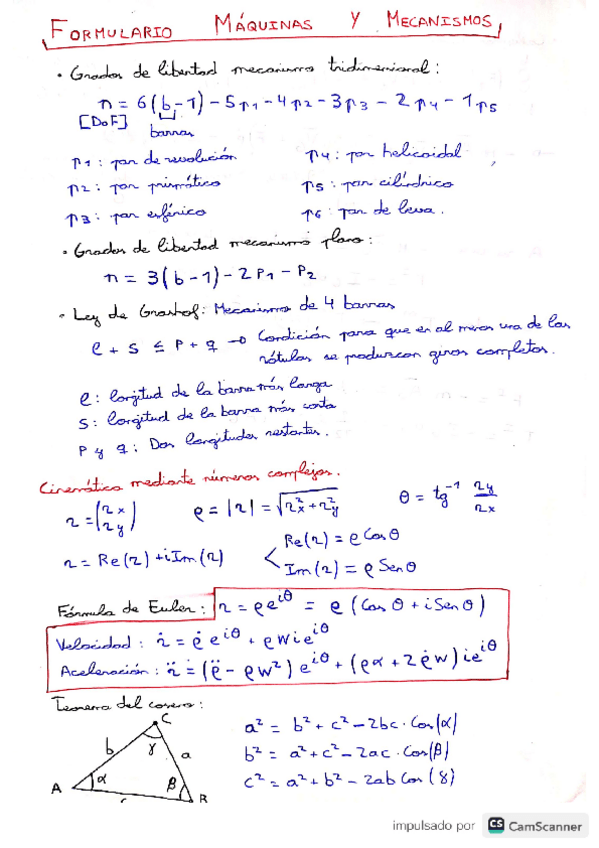 FORMULARIO MÁQUINAS Y MECANISMOS
• Grados de libertad mecanismo tridimensional:
n = 6(b-1) - 5p1 - 4p2 - 3p3 - 2p4 - 1p5
[DoF] barras
p1: par de revolución
p2: par prismático
p3: par esférico
p4: par helicoidal
p5: par cilíndrico
p6: par de leva.
• Grados de libertad mecanismo plano:
n = 3(b-1) - 2P1 - P2
• Ley de Grashof: Mecanismo de 4 barras
l + s ≤ p + q → Condición para que en al menos una de las
rótulas se produzcan giros completos.
l: longitud de la barra más larga
s: longitud de la barra más corta
P y q: Dos longitudes restantes.
Cinemática mediante números complejos.
r = (rx ry) ρ = |r| = √(rx² + ry²) θ = tg⁻¹ ry/rx
r = Re(r) + i Im(r) < Re(r) = ρ Cos θ
Im(r) = ρ Sen θ
Fórmula de Euler: r = ρe^{iθ} = ρ (Cos θ + i Sen θ)
Velocidad: ṙ = ρ̇ e^{iθ} + ρwie^{iθ}
Aceleración: r̈ = (ρ̈ - ρw²) e^{iθ} + (ρα + 2ρ̇w) ie^{iθ}
Teorema del coseno:
C
b γ a
A α β B
c
a² = b² + c² - 2bc · Cos(α)
b² = a² + c² - 2ac · Cos(β)
c² = a² + b² - 2ab Cos (γ)
impulsado por CS CamScanner